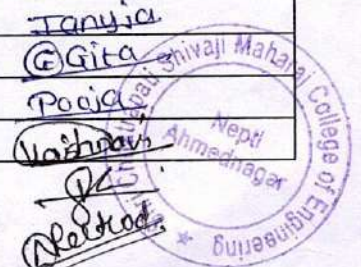 Tanuja
G Gita
Pooja
Vaishnavi
Chhatrapati Shivaji Maharaj College of Engineering
Nepti
Ahmednagar